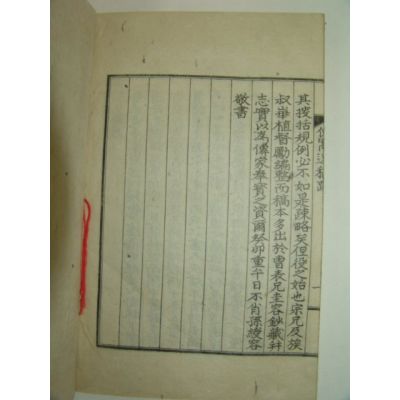 其搜括規例必不如是疎略矣但役之始也宗兄及族
叔華植督勵編整而稿本多出於曺表兄圭容鈔藏幷
志實以爲傳家奉寶之資爾癸卯重午日不肖孫綬容
敬書